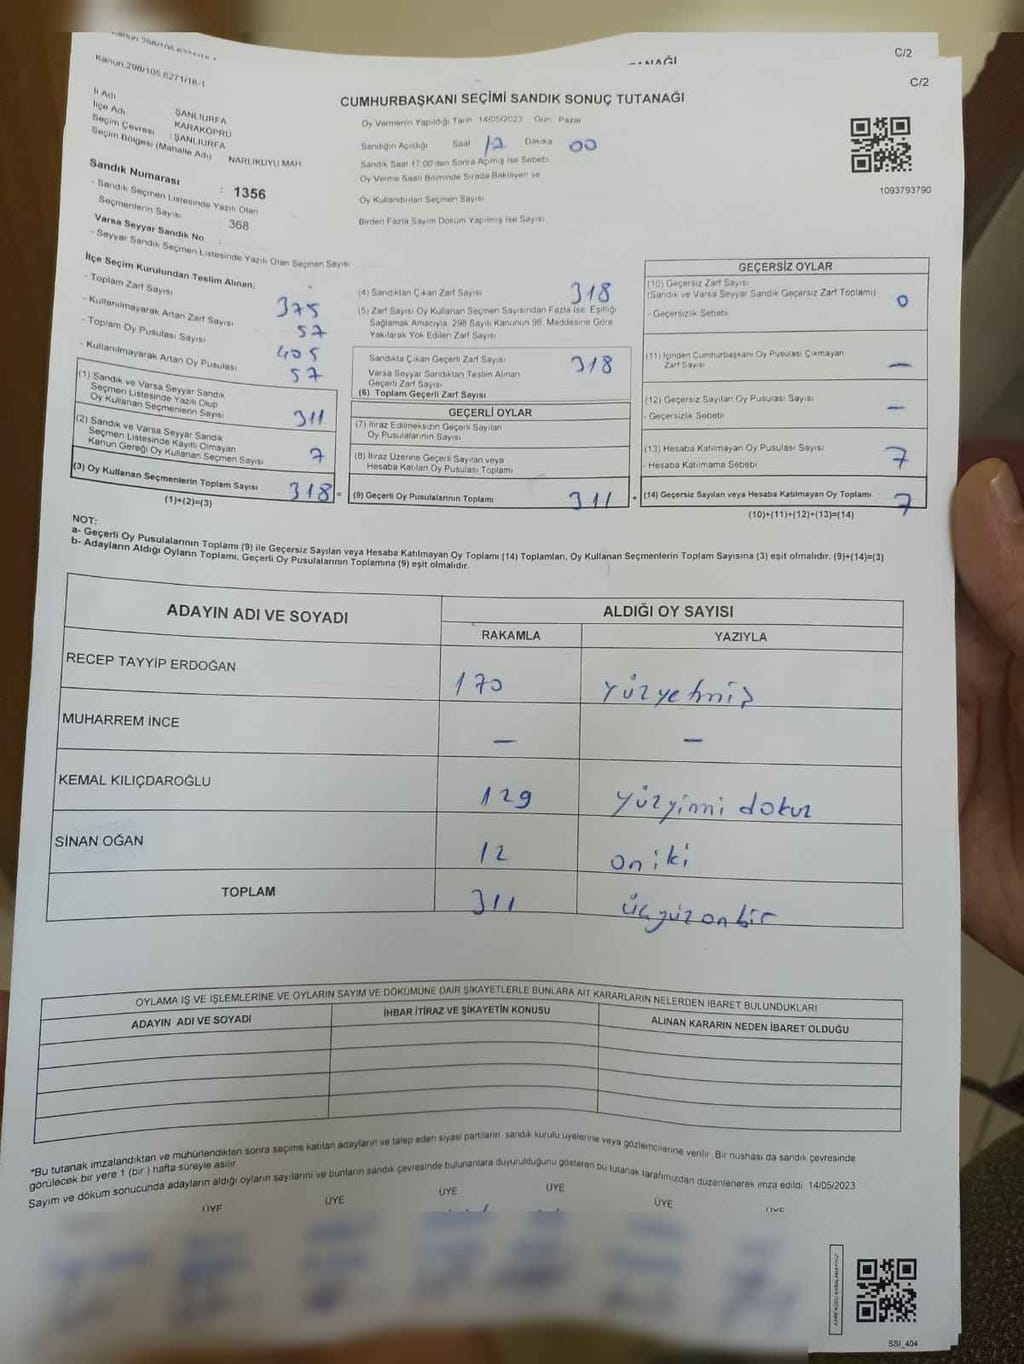 C/2
Kanun.298/105,6271/18-1
C/2
CUMHURBAŞKANI SEÇİMİ SANDIK SONUÇ TUTANAĞI
İl Adı : ŞANLIURFA
İlçe Adı : KARAKÖPRÜ
Seçim Çevresi : ŞANLIURFA
Seçim Bölgesi (Mahalle Adı) NARLIKUYU MAH
Sandık Numarası : 1356
- Sandık Seçmen Listesinde Yazılı Olan
Seçmenlerin Sayısı : 368
Varsa Seyyar Sandık No :
- Seyyar Sandık Seçmen Listesinde Yazılı Olan Seçmen Sayısı
Oy Vermenin Yapıldığı Tarih 14/05/2023 Gün Pazar
Sandığın Açıldığı Saat 17 Dakika 00
Sandık Saat 17:00'den Sonra Açılmış İse Sebebi
Oy Verme Saati Bitiminde Sırada Bekleyen ve
Oy Kullandırılan Seçmen Sayısı
Birden Fazla Sayım Döküm Yapılmış İse Sayısı
1093793790
İlçe Seçim Kurulundan Teslim Alınan;
- Toplam Zarf Sayısı 375
- Kullanılmayarak Artan Zarf Sayısı 57
- Toplam Oy Pusulası Sayısı 405
- Kullanılmayarak Artan Oy Pusulası 57
(1) Sandık ve Varsa Seyyar Sandık
Seçmen Listesinde Yazılı Olup
Oy Kullanan Seçmenlerin Sayısı 311
(2) Sandık ve Varsa Seyyar Sandık
Seçmen Listesinde Kayıtlı Olmayan
Kanun Gereği Oy Kullanan Seçmen Sayısı 7
(3) Oy Kullanan Seçmenlerin Toplam Sayısı 318 =
(1)+(2)=(3)
(4) Sandıktan Çıkan Zarf Sayısı 318
(5) Zarf Sayısı Oy Kullanan Seçmen Sayısından Fazla İse, Eşitliği
Sağlamak Amacıyla, 298 Sayılı Kanunun 98. Maddesine Göre
Yakılarak Yok Edilen Zarf Sayısı
Sandıkta Çıkan Geçerli Zarf Sayısı 318
Varsa Seyyar Sandıktan Teslim Alınan
Geçerli Zarf Sayısı
(6) Toplam Geçerli Zarf Sayısı
GEÇERLİ OYLAR
(7) İtiraz Edilmeksizin Geçerli Sayılan
Oy Pusulalarının Sayısı
(8) İtiraz Üzerine Geçerli Sayılan veya
Hesaba Katılan Oy Pusulası Toplamı
(9) Geçerli Oy Pusulalarının Toplamı 311 +
GEÇERSİZ OYLAR
(10) Geçersiz Zarf Sayısı
(Sandık ve Varsa Seyyar Sandık Geçersiz Zarf Toplamı) 0
- Geçersizlik Sebebi
(11) İçinden Cumhurbaşkanı Oy Pusulası Çıkmayan
Zarf Sayısı —
(12) Geçersiz Sayılan Oy Pusulası Sayısı —
- Geçersizlik Sebebi
(13) Hesaba Katılmayan Oy Pusulası Sayısı 7
- Hesaba Katılmama Sebebi
(14) Geçersiz Sayılan veya Hesaba Katılmayan Oy Toplamı 7
(10)+(11)+(12)+(13)=(14)
NOT:
a- Geçerli Oy Pusulalarının Toplamı (9) ile Geçersiz Sayılan veya Hesaba Katılmayan Oy Toplamı (14) Toplamları, Oy Kullanan Seçmenlerin Toplam Sayısına (3) eşit olmalıdır. (9)+(14)=(3)
b- Adayların Aldığı Oyların Toplamı, Geçerli Oy Pusulalarının Toplamına (9) eşit olmalıdır.
ADAYIN ADI VE SOYADI ALDIĞI OY SAYISI
RAKAMLA YAZIYLA
RECEP TAYYİP ERDOĞAN 170 yüzyetmiş
MUHARREM İNCE — —
KEMAL KILIÇDAROĞLU 129 yüzyirmi dokuz
SİNAN OĞAN 12 on iki
TOPLAM 311 üçyüzonbir
OYLAMA İŞ VE İŞLEMLERİNE VE OYLARIN SAYIM VE DÖKÜMÜNE DAİR ŞİKAYETLERLE BUNLARA AİT KARARLARIN NELERDEN İBARET BULUNDUKLARI
ADAYIN ADI VE SOYADI İHBAR İTİRAZ VE ŞİKAYETİN KONUSU ALINAN KARARIN NEDEN İBARET OLDUĞU
*Bu tutanak imzalandıktan ve mühürlendikten sonra seçime katılan adayların ve talep eden siyasi partilerin sandık kurulu üyelerine veya gözlemcilerine verilir. Bir nüshası da sandık çevresinde
görülecek bir yere 1 (bir ) hafta süreyle asılır.
Sayım ve döküm sonucunda adayların aldığı oyların sayılarını ve bunların sandık çevresinde bulunanlara duyurulduğunu gösteren bu tutanak tarafımızdan düzenlenerek imza edildi. 14/05/2023
ÜYE ÜYE ÜYE ÜYE ÜYE ÜYE
SSİ_404